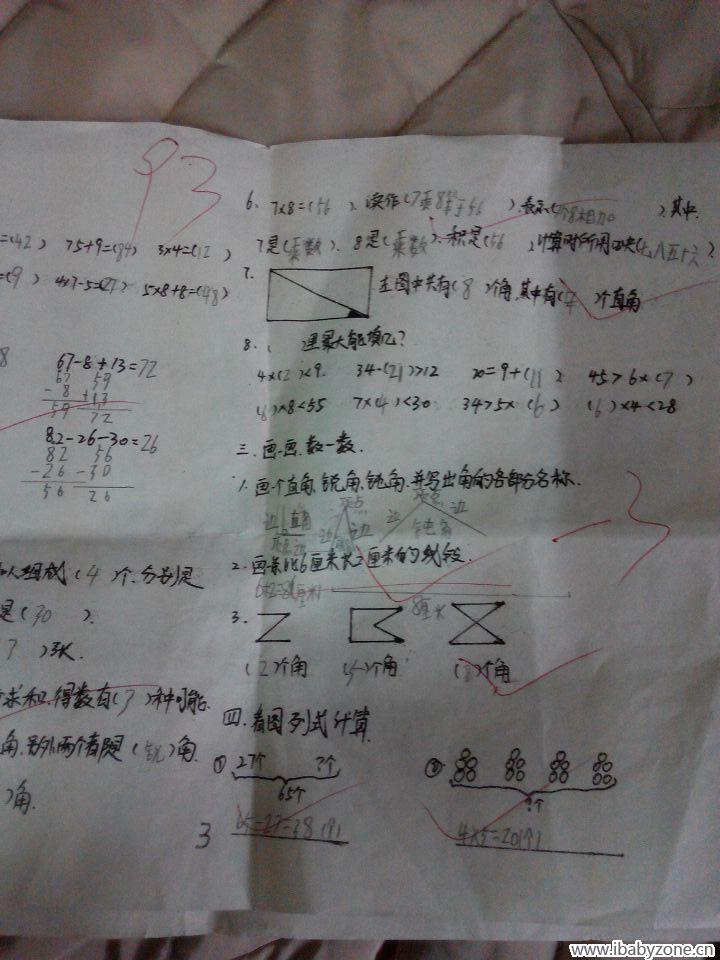 93
=(42) 75+9=(84) 3×4=(12)
=(9) 4×7-5=(23) 5×8+8=(48)
67-8+13=72
67 59
-8 +13
59 72
82-26-30=26
82 56
-26 -30
56 26
组成(4)个,分别是
是(30).
7)张.
求和,得数有(3)种可能.
角,另外两个都是(锐)角.
)角.
3
6、7×8=(56),读作(7乘8等于56),表示(7个8相加),其中
7是(乘数),8是(乘数),积是(56),计算时所用口诀(七八五十六).
7.左图中共有(8)个角,其中有(4)个直角
8、( )里最大能填几?
4×(2)<9. 34-(21)>12 20=9+(11) 45>6×(7)
(6)×8<55 7×(4)<30 34>5×(6) (6)×4<28
三.画一画,数一数.
1.画个直角,锐角,钝角.并写出角的各部分名称.
边 直角 顶点 边 顶点 边
边 边 钝角
2.画条比6厘米长2厘米的线段.
6+2=8(厘米)
8厘米
3.
(2)个角 (5)个角 (8)个角
-3
四.看图列式计算
① 27个 ?个
65个
65-27=38(个)
②
?个
4×5=20(个)
www.ibabyzone.cn